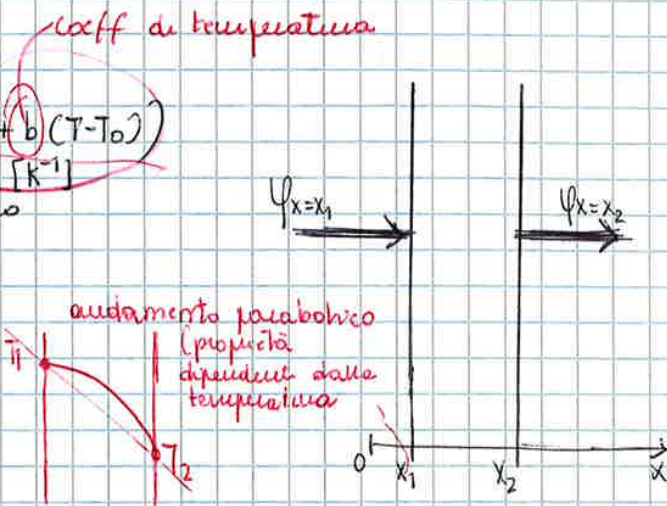 coeff di temperatura
+ b (T-T₀)
[K⁻¹]
φx=x₁
φx=x₂
andamento parabolico
(proprietà
dipendenti dalla
temperatura
T1
T2
0 x₁ x₂ x